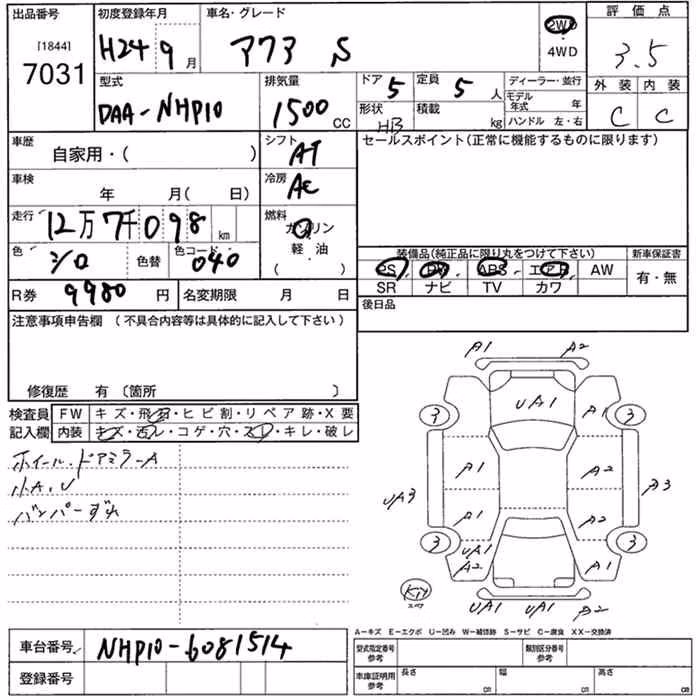 出品番号 初度登録年月 車名・グレード 評価点
[1844] H24 9月 アクア S 2WD・4WD 3.5
7031
型式 排気量 ドア 5 定員 5人 ディーラー・並行 外装 内装
DAA-NHP10 1500CC 形状 HB 積載 kg モデル年式 年 C C
ハンドル 左・右
車歴 自家用・( ) シフト AT セールスポイント(正常に機能するものに限ります)
車検 年 月( 日) 冷房 AC
走行 12万7千098km 燃料 ガソリン
軽油
( )
色 シロ 色替 色コード 040 装備品(純正品に限り丸をつけて下さい) 新車保証書
PS PW ABS エアB AW 有・無
R券 9980円 名変期限 月 日 SR ナビ TV カワ
注意事項申告欄(不具合内容等は具体的に記入して下さい) 後日品
修復歴 有〔箇所 〕
検査員 FW キズ・飛石・ヒビ割・リペア跡・X要
記入欄 内装 キズ・汚レ・コゲ・穴・スレ・キレ・破レ
ホイール・ドアミラーA
小A,U
バンパーずれ
A1 A2
UA1
3 A1 3
A1 A2
UA3 A3
A1 A2
3 UA1 UA1 3
A2 A2
キット
スペア
UA1 UA1 A2
A−キズ E−エクボ U−凹み W−補修跡 S−サビ C−腐食 XX−交換済
車台番号 NHP10-6081514 型式指定番号 参考 類別区分番号 参考
登録番号 車庫証明用 参考 長さ cm 幅 cm 高さ cm